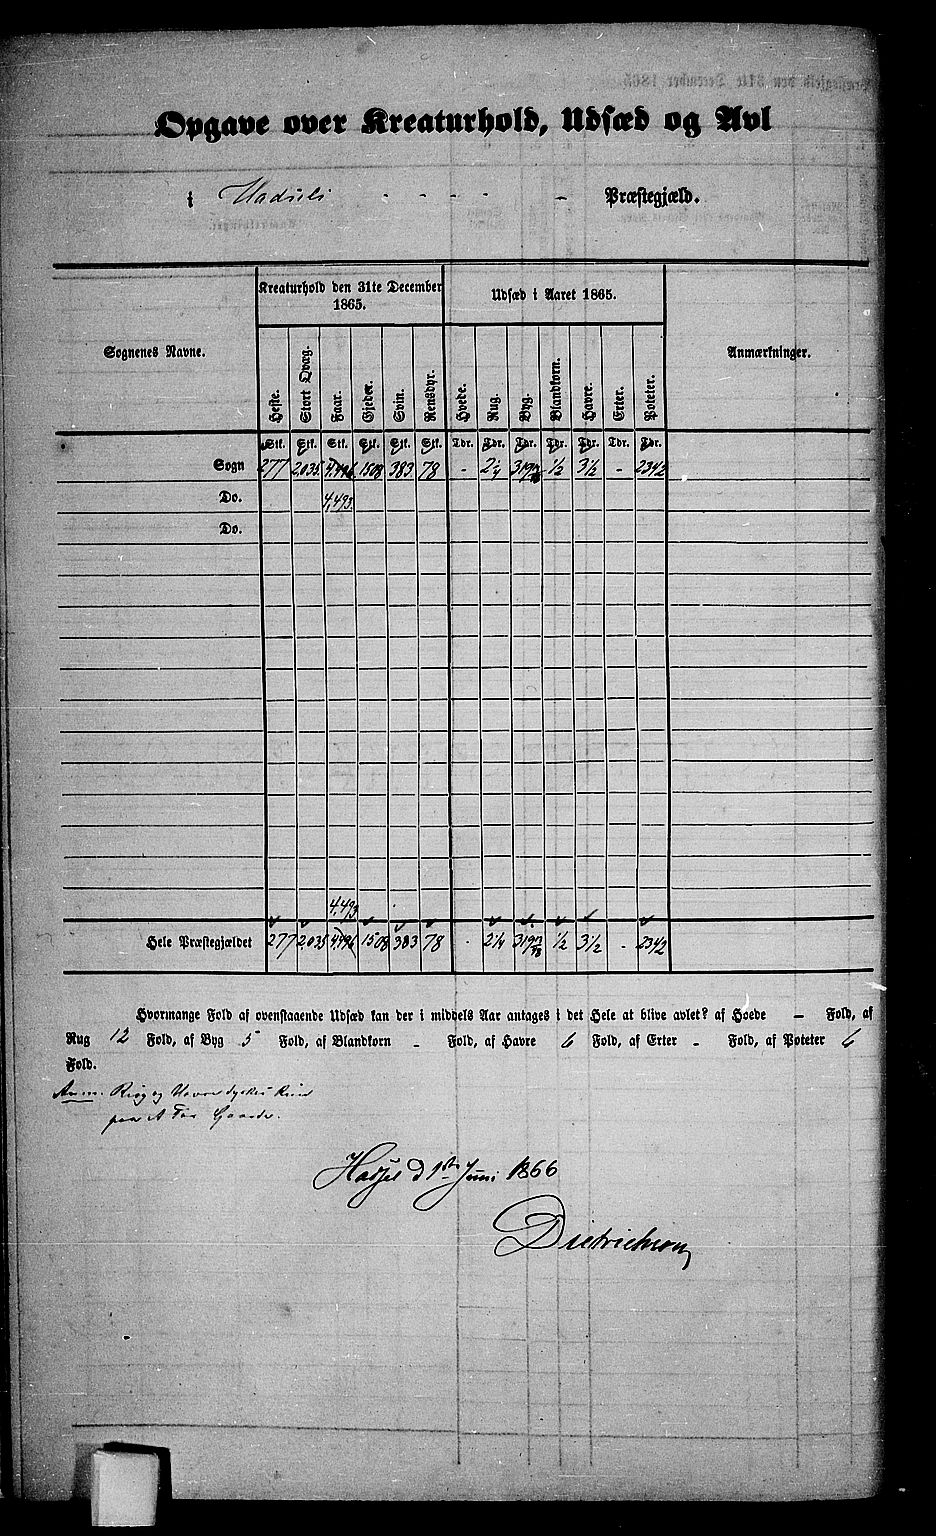 Opgave over Kreaturhold, Udsæd og Avl
i Hadsels - - - - - Præstegjæld.
Sognenes Navne.
Kreaturhold den 31te December 1865.
Udsæd i Aaret 1865.
Anmærkninger.
Heste. Stort Qvæg. Faar. Gjeder. Svin. Rensdyr. Hvede. Rug. Byg. Blandkorn. Havre. Erter. Poteter.
Stk. Stk. Stk. Stk. Stk. Stk. Tdr. Tdr. Tdr. Tdr. Tdr. Tdr. Tdr.
Sogn 277 2,035 4,496 1508 383 78 - 2¼ 319 ½ 3½ - 2342
Do. 4,493
Do.
4,493
Hele Præstegjældet 277 2,035 4,496 1508 383 78 - 2¼ 319 ½ 3½ - 2342
Hvormange Fold af ovenstaaende Udsæd kan der i middels Aar antages i det Hele at blive avlet? af Hvede — Fold, af
Rug 12 Fold, af Byg 5 Fold, af Blandkorn - Fold, af Havre 6 Fold, af Erter - Fold, af Poteter 6
Fold.
Anm. Rug og Havre dyrkes kun
paa et Par Gaarde.
Hadsel d 1ste Juni 1866
Dietrichson